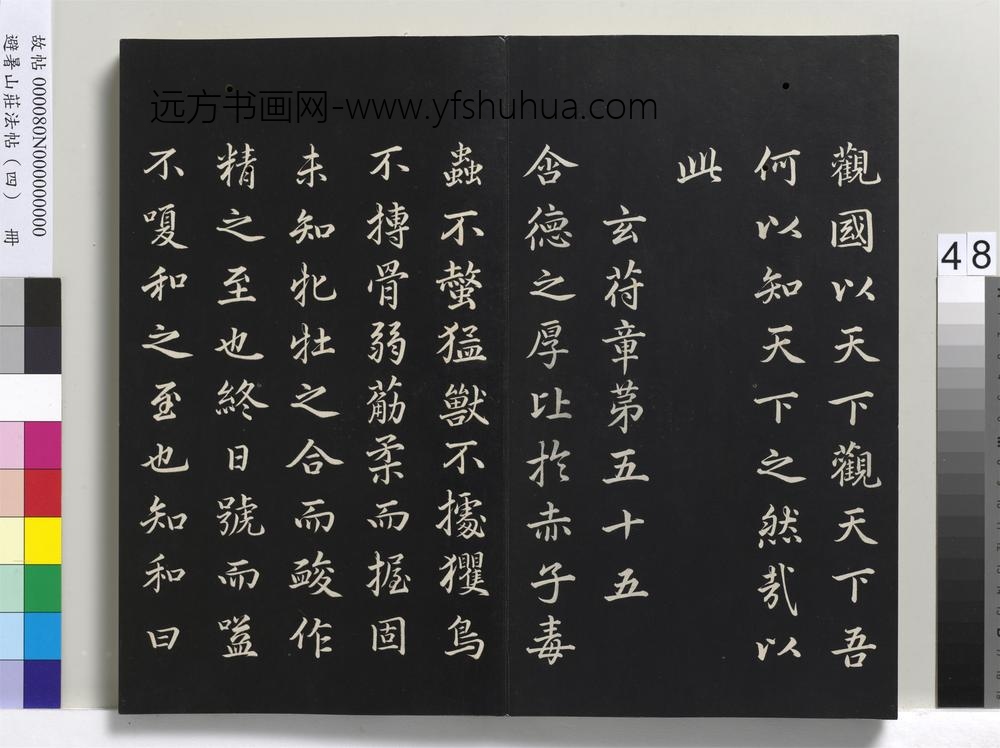 觀國以天下觀天下吾
何以知天下之然哉以
此
玄符章第五十五
含德之厚比於赤子毒
蟲不螫猛獸不據玃鳥
不搏骨弱筋柔而握固
未知牝牡之合而䘒作
精之至也終日號而嗌
不嗄和之至也知和曰
远方书画网-www.yfshuhua.com
故帖 000080N000000000
避暑山莊法帖(四) 冊
48